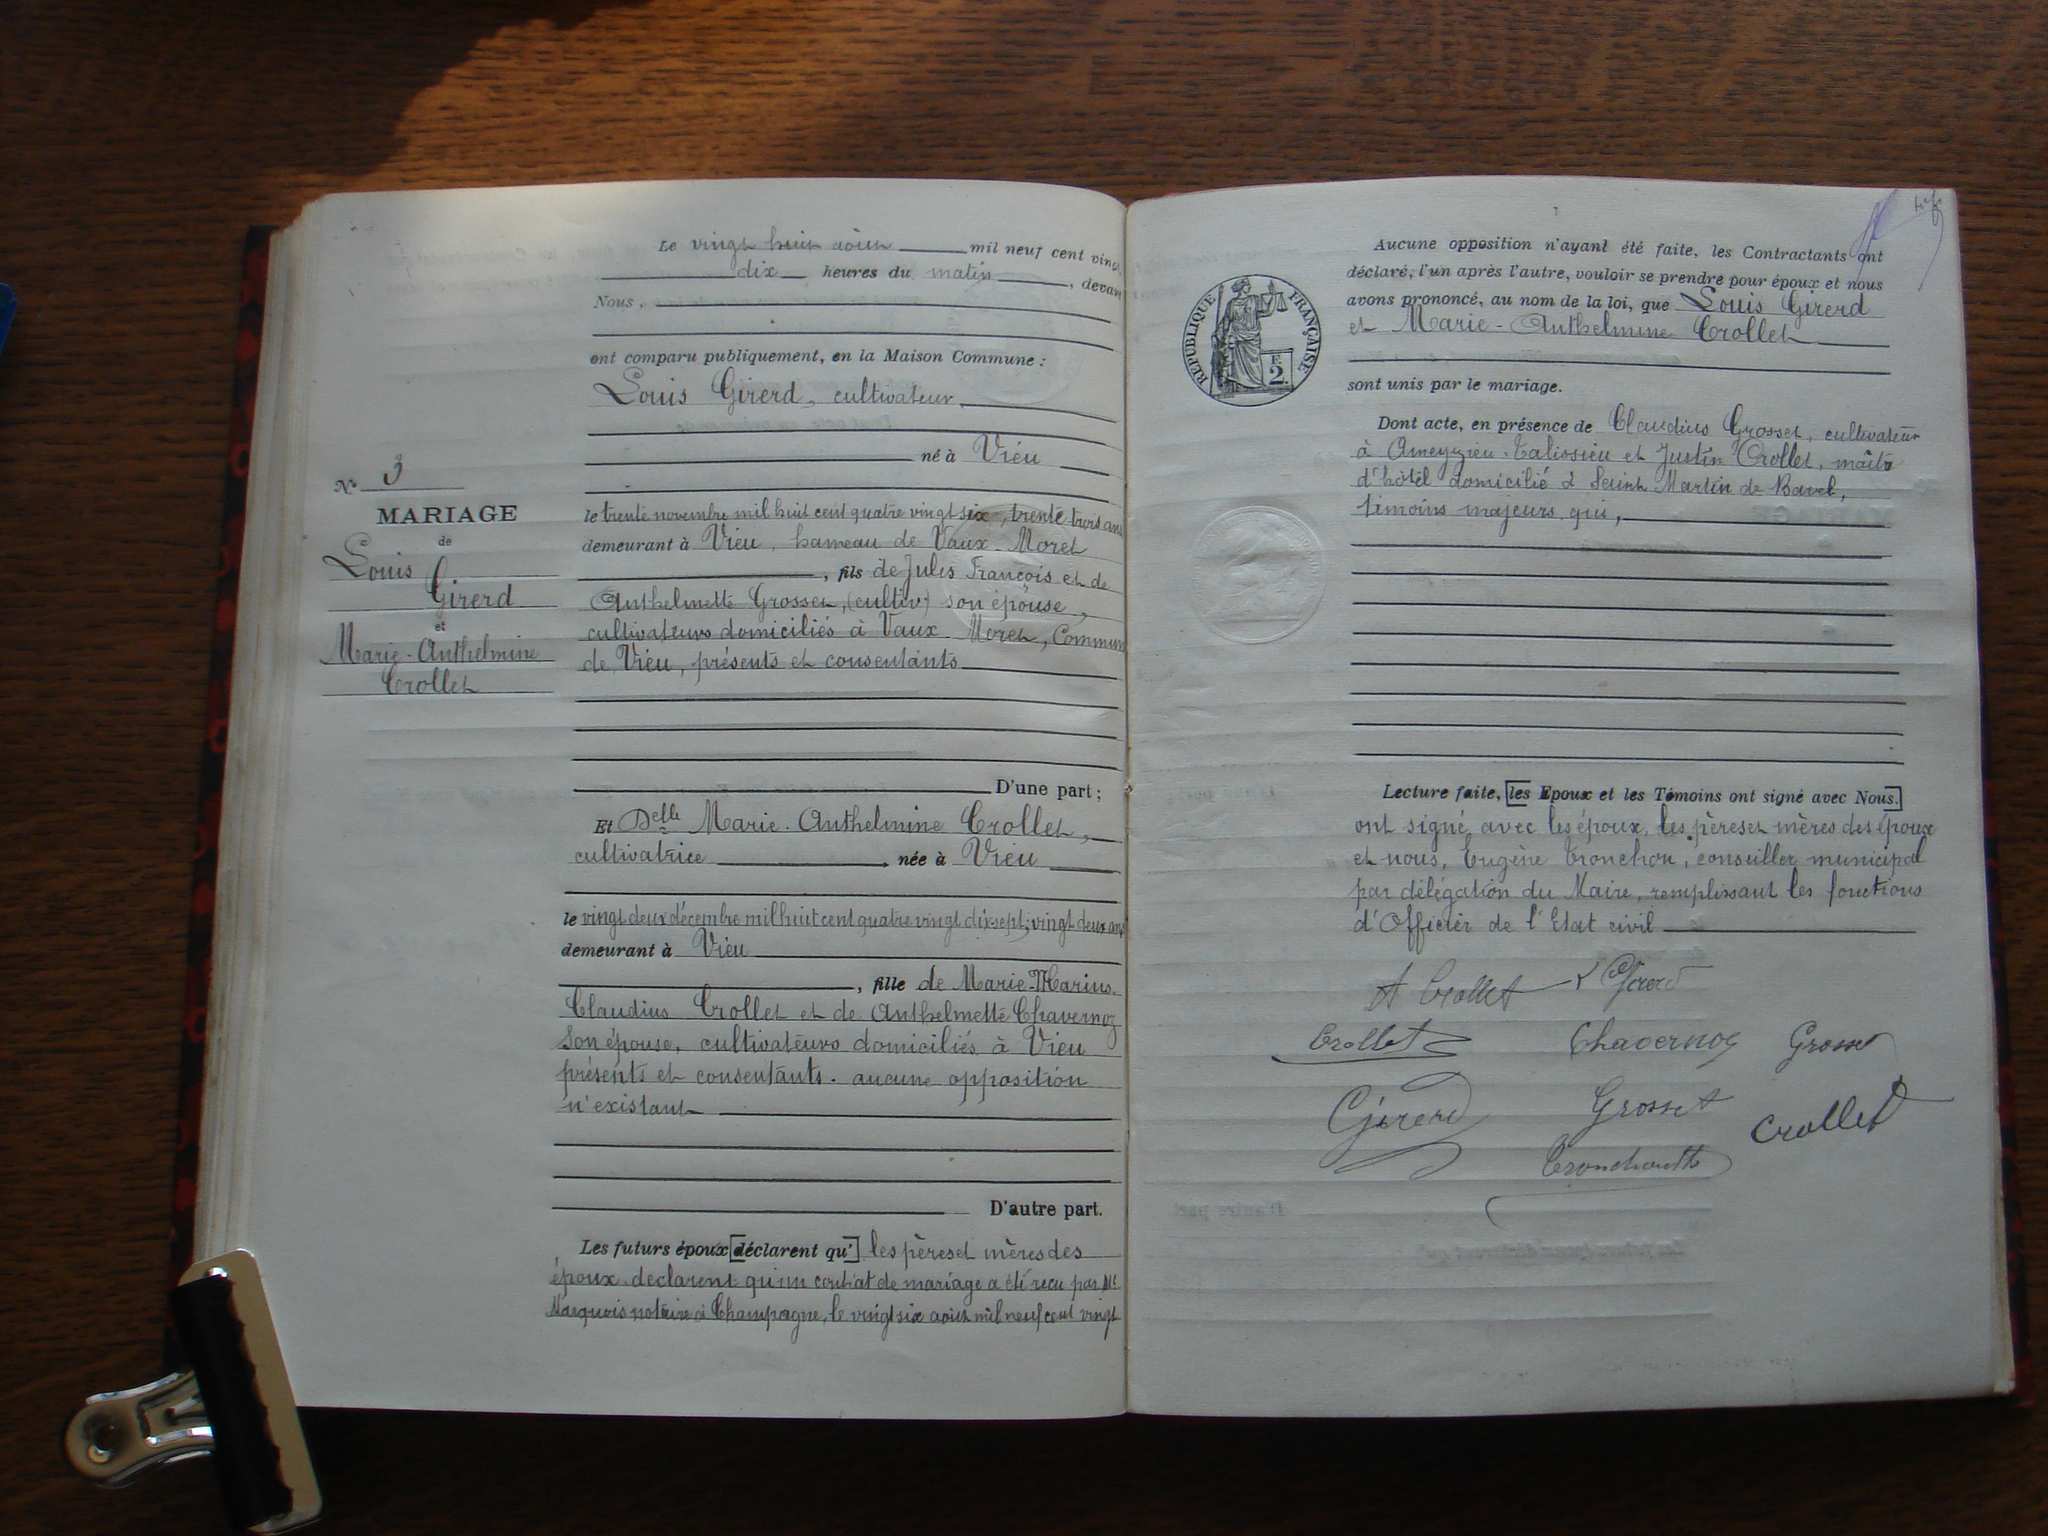 Le vingt huit août mil neuf cent vingt
dix heures du matin, devant
Nous,
ont comparu publiquement, en la Maison Commune :
Louis Girerd, cultivateur
né à Vieu
N° 3
MARIAGE
de
Louis
Girerd
et
Marie-Anthelmine
Crollet
le trente novembre mil huit cent quatre vingt six, trente trois ans
demeurant à Vieu, hameau de Vaux-Moret
, fils de Jules François et de
Anthelmette Grosset, (cultiv) son épouse,
cultivateurs domiciliés à Vaux Moret, Commune
de Vieu, présents et consentants
D'une part ;
Et Delle Marie-Anthelmine Crollet,
cultivatrice, née à Vieu
le vingt deux décembre mil huit cent quatre vingt dix sept, vingt deux ans
demeurant à Vieu
, fille de Marie-Marius
Claudius Crollet et de Anthelmette Chavernoz
son épouse, cultivateurs domiciliés à Vieu
présents et consentants. aucune opposition
n'existant
D'autre part.
Les futurs époux [déclarent qu'] les pères et mères des
époux déclarent qu'un contrat de mariage a été reçu par Me
Marquois notaire à Champagne, le vingt six août mil neuf cent vingt
Aucune opposition n'ayant été faite, les Contractants ont
déclaré, l'un après l'autre, vouloir se prendre pour époux et nous
avons prononcé, au nom de la loi, que Louis Girerd
et Marie-Anthelmine Crollet
sont unis par le mariage.
RÉPUBLIQUE FRANÇAISE
F.
2.
Dont acte, en présence de Claudius Grosset, cultivateur
à Ameyzieu-Talissieu et Justin Crollet, maître
d'hôtel domicilié à Saint Martin de Bavel,
témoins majeurs qui,
Lecture faite, [les Epoux et les Témoins ont signé avec Nous.]
ont signé avec les époux, les pères et mères des époux
et nous, Eugène Tronchon, conseiller municipal
par délégation du Maire, remplissant les fonctions
d'Officier de l'Etat civil
A Crollet L Girerd
Crollet Chavernoz Grosset
Girerd Grosset Crollet